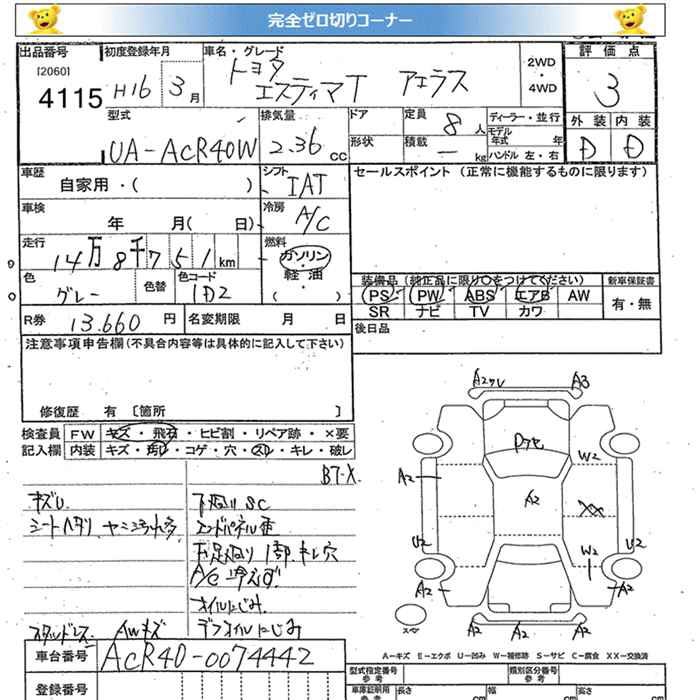 完全ゼロ切りコーナー
出品番号 初度登録年月 車名・グレード 2WD・4WD 評価点
[2060]
4115 H16 3月 トヨタ エスティマT アエラス 3
型式 排気量 ドア 定員 8人 ディーラー・並行 外装 内装
UA-ACR40W 2.36cc 形状 積載 ー kg モデル年式 年 ハンドル 左・右 D D
車歴 自家用・( ) シフト IAT セールスポイント (正常に機能するものに限ります)
車検 年 月( 日) 冷房 A/C
走行 14万8千751km 燃料 ガソリン・軽油 ( )
色 グレー 色替 色コード 1D2
装備品(純正品に限り○をつけてください) 新車保証書
PS PW ABS エアB AW 有・無
SR ナビ TV カワ
R券 13.660円 名変期限 月 日 後日品
注意事項申告欄(不具合内容等は具体的に記入して下さい)
修復歴 有 [箇所 ]
検査員 FW キズ・飛石・ヒビ割・リペア跡・×要
記入欄 内装 キズ・汚れ・コゲ・穴・スレ・キレ・破レ
BT-X
キズU
シートヘタリ
下回りSC
A/C 冷えず
オイルにじみ
スタッドレス AWキズ
デフオイルにじみ
車台番号 ACR40-0074442
登録番号
A2 A3
A2 W2
A2
XX
U2 W2 U2
A2 A2
A2 A2 A2
スペア
A-キズ E-エクボ U-凹み W-補修跡 S-サビ C-腐食 XX-交換済
型式指定番号 参考 類別区分番号 参考
車庫証明用 参考 長さ cm 幅 cm 高さ cm